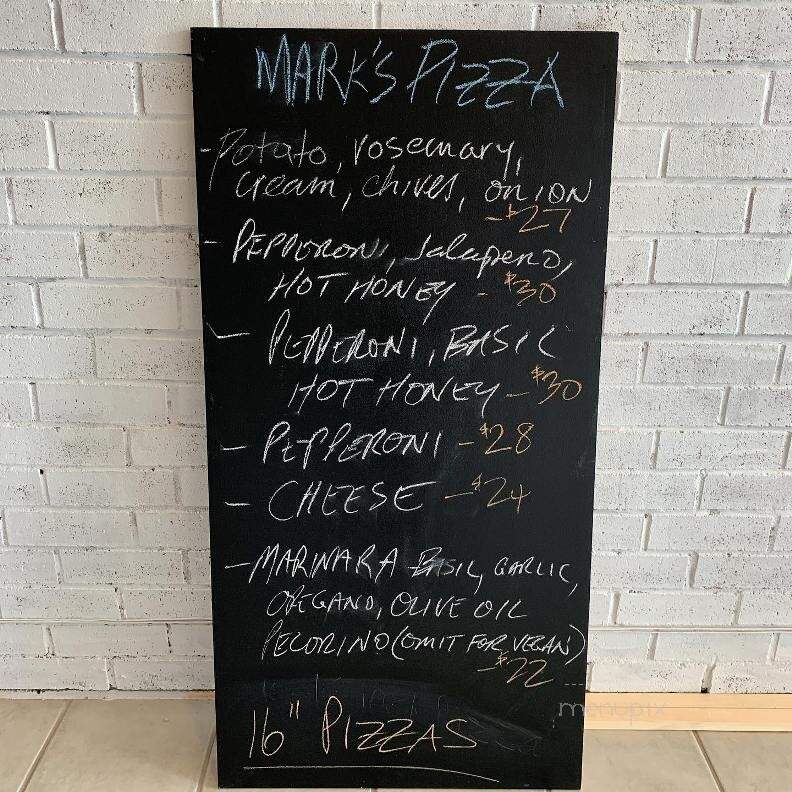 MARK'S PIZZA
- Potato, rosemary,
cream, chives, ONION
- $27
- PEPPERONI, Jalapeno,
HOT HONEY - $30
- PEPPERONI, BASIL
HOT HONEY - $30
- PEPPERONI - $28
- CHEESE - $24
- MARINARA BASIL, GARLIC,
OREGANO, OLIVE OIL
PECORINO (OMIT FOR VEGAN)
- $22
16" PIZZAS
menupix